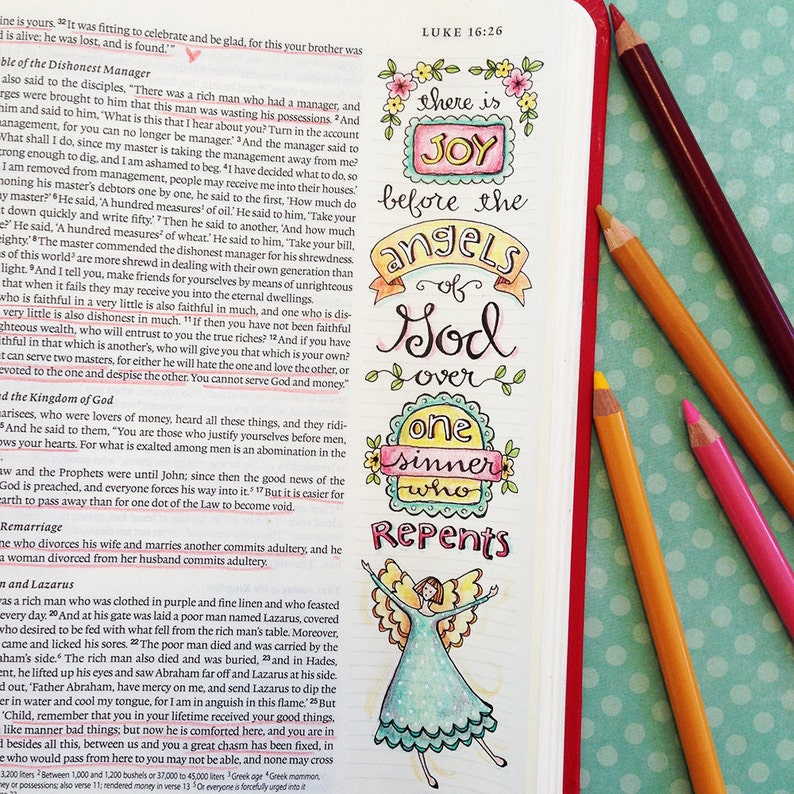 LUKE 16:26
ine is yours. 32 It was fitting to celebrate and be glad, for this your brother was
d is alive; he was lost, and is found.’”
ble of the Dishonest Manager
also said to the disciples, “There was a rich man who had a manager, and
rges were brought to him that this man was wasting his possessions. 2 And
him and said to him, ‘What is this that I hear about you? Turn in the account
management, for you can no longer be manager.’ 3 And the manager said to
What shall I do, since my master is taking the management away from me?
trong enough to dig, and I am ashamed to beg. 4 I have decided what to do, so
I am removed from management, people may receive me into their houses.’
moning his master’s debtors one by one, he said to the first, ‘How much do
my master?’ 6 He said, ‘A hundred measures1 of oil.’ He said to him, ‘Take your
t down quickly and write fifty.’ 7 Then he said to another, ‘And how much
e?’ He said, ‘A hundred measures2 of wheat.’ He said to him, ‘Take your bill,
eighty.’ 8 The master commended the dishonest manager for his shrewdness.
ns of this world3 are more shrewd in dealing with their own generation than
light. 9 And I tell you, make friends for yourselves by means of unrighteous
that when it fails they may receive you into the eternal dwellings.
who is faithful in a very little is also faithful in much, and one who is dis-
very little is also dishonest in much. 11 If then you have not been faithful
ghteous wealth, who will entrust to you the true riches? 12 And if you have
ithful in that which is another’s, who will give you that which is your own?
t can serve two masters, for either he will hate the one and love the other, or
evoted to the one and despise the other. You cannot serve God and money.”
nd the Kingdom of God
arisees, who were lovers of money, heard all these things, and they ridi-
5 And he said to them, “You are those who justify yourselves before men,
ows your hearts. For what is exalted among men is an abomination in the
.
aw and the Prophets were until John; since then the good news of the
God is preached, and everyone forces his way into it.5 17 But it is easier for
earth to pass away than for one dot of the Law to become void.
Remarriage
ne who divorces his wife and marries another commits adultery, and he
a woman divorced from her husband commits adultery.
n and Lazarus
was a rich man who was clothed in purple and fine linen and who feasted
every day. 20 And at his gate was laid a poor man named Lazarus, covered
who desired to be fed with what fell from the rich man’s table. Moreover,
came and licked his sores. 22 The poor man died and was carried by the
ham’s side.6 The rich man also died and was buried, 23 and in Hades,
ent, he lifted up his eyes and saw Abraham far off and Lazarus at his side.
d out, ‘Father Abraham, have mercy on me, and send Lazarus to dip the
er in water and cool my tongue, for I am in anguish in this flame.’ 25 But
‘Child, remember that you in your lifetime received your good things,
n like manner bad things; but now he is comforted here, and you are in
d besides all this, between us and you a great chasm has been fixed, in
who would pass from here to you may not be able, and none may cross
3,200 liters 2 Between 1,000 and 1,200 bushels or 37,000 to 45,000 liters 3 Greek age 4 Greek mammon,
ey or possessions; also verse 11; rendered money in verse 13 5 Or everyone is forcefully urged into it
there is
JOY
before the
angels
of
God
over
one
sinner
who
REPENTS